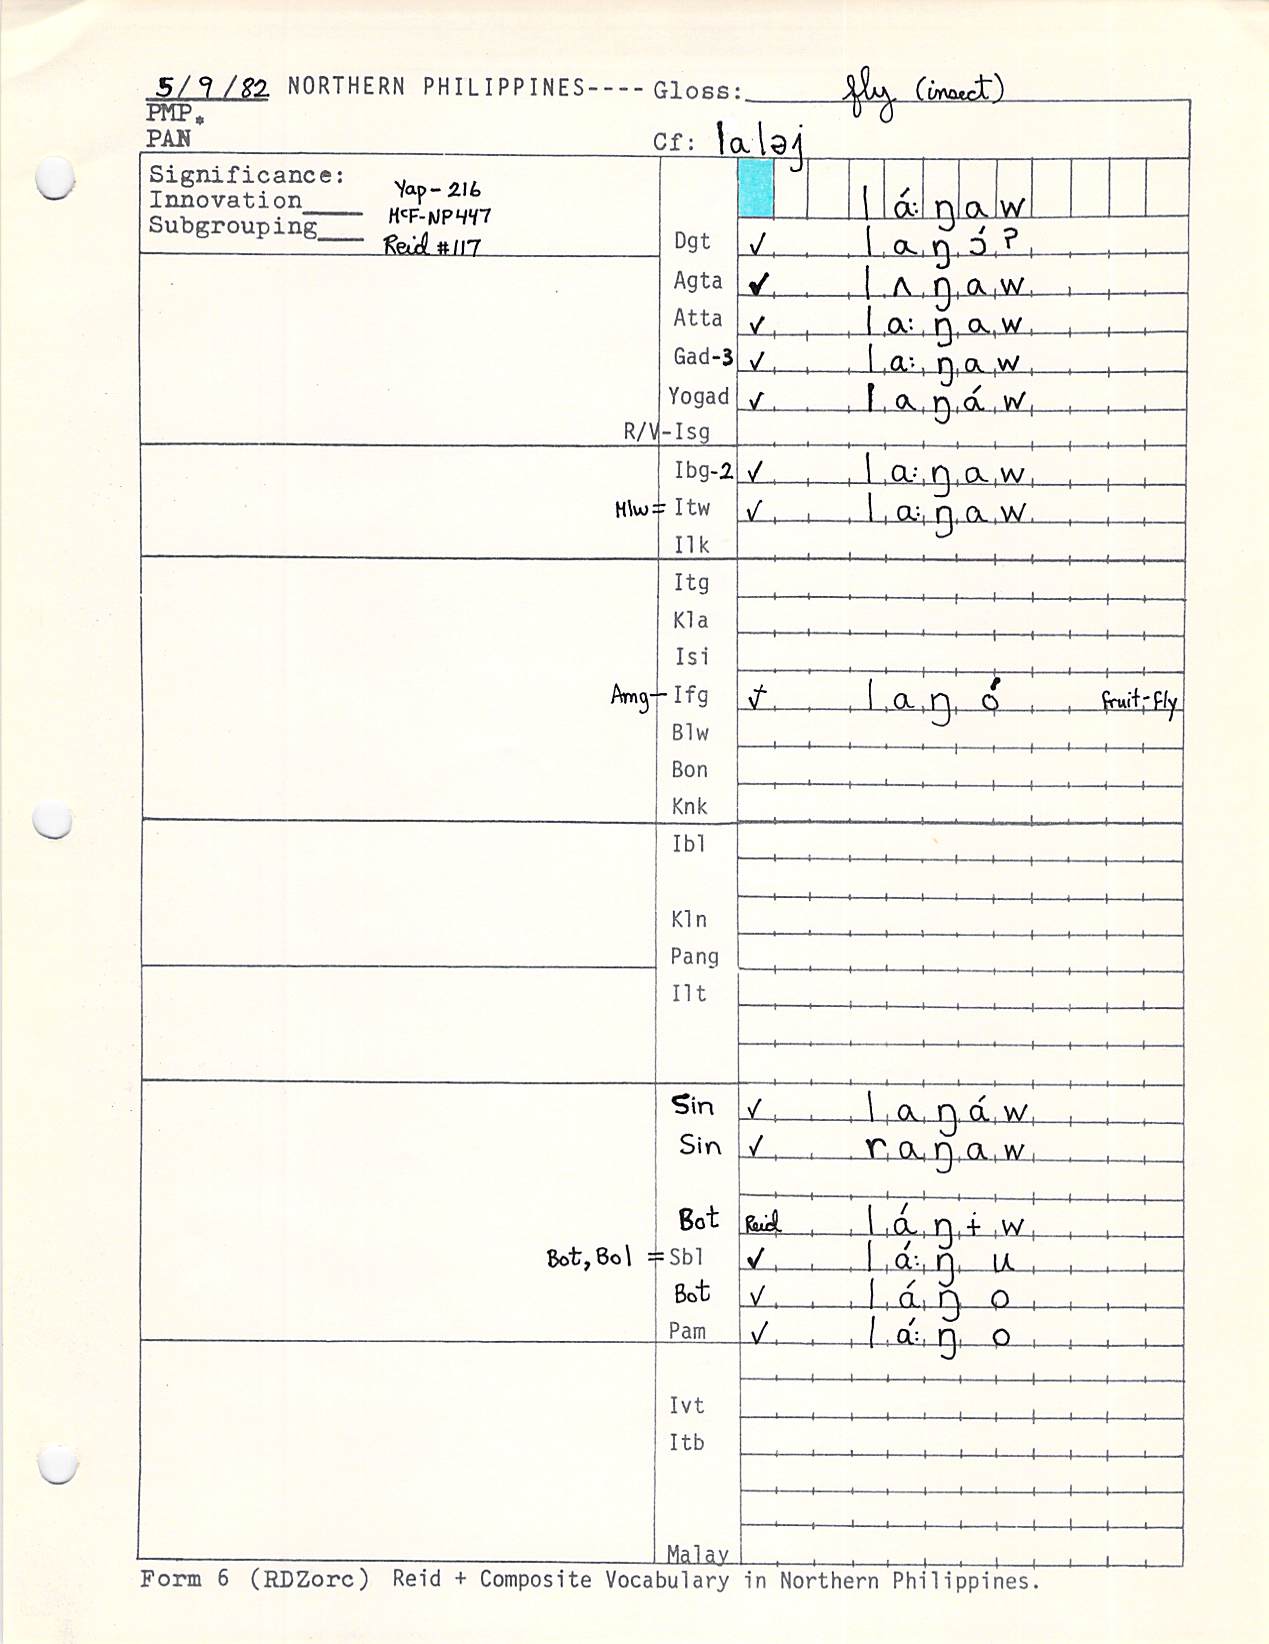 5/9/82 NORTHERN PHILIPPINES---- Gloss: fly (insect)
PMP*
PAN Cf: laləj
Significance: Yap-216
Innovation____ McF-NP447
Subgrouping____ Reid #117
lá:ŋaw
Dgt ✓ laŋɔ́ʔ
Agta ✓ lʌŋaw
Atta ✓ la:ŋaw
Gad-3 ✓ la:ŋaw
Yogad ✓ laŋáw
R/V-Isg
Ibg-2 ✓ la:ŋaw
Mlw= Itw ✓ la:ŋaw
Ilk
Itg
Kla
Isi
Amg- Ifg ✓ laŋó fruit-fly
Blw
Bon
Knk
Ibl
Kln
Pang
Ilt
Sin ✓ laŋáw
Sin ✓ raŋaw
Bot Reid láŋɨw
Bot, Bol = Sbl ✓ lá:ŋu
Bot ✓ láŋo
Pam ✓ lá:ŋo
Ivt
Itb
Malay
Form 6 (RDZorc) Reid + Composite Vocabulary in Northern Philippines.